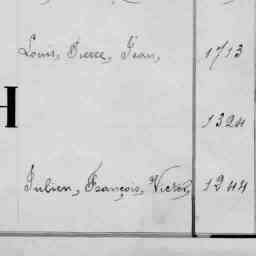 Louis, Pierre, Jean, 1713
H
1324
Julien, François, Victor, 1244